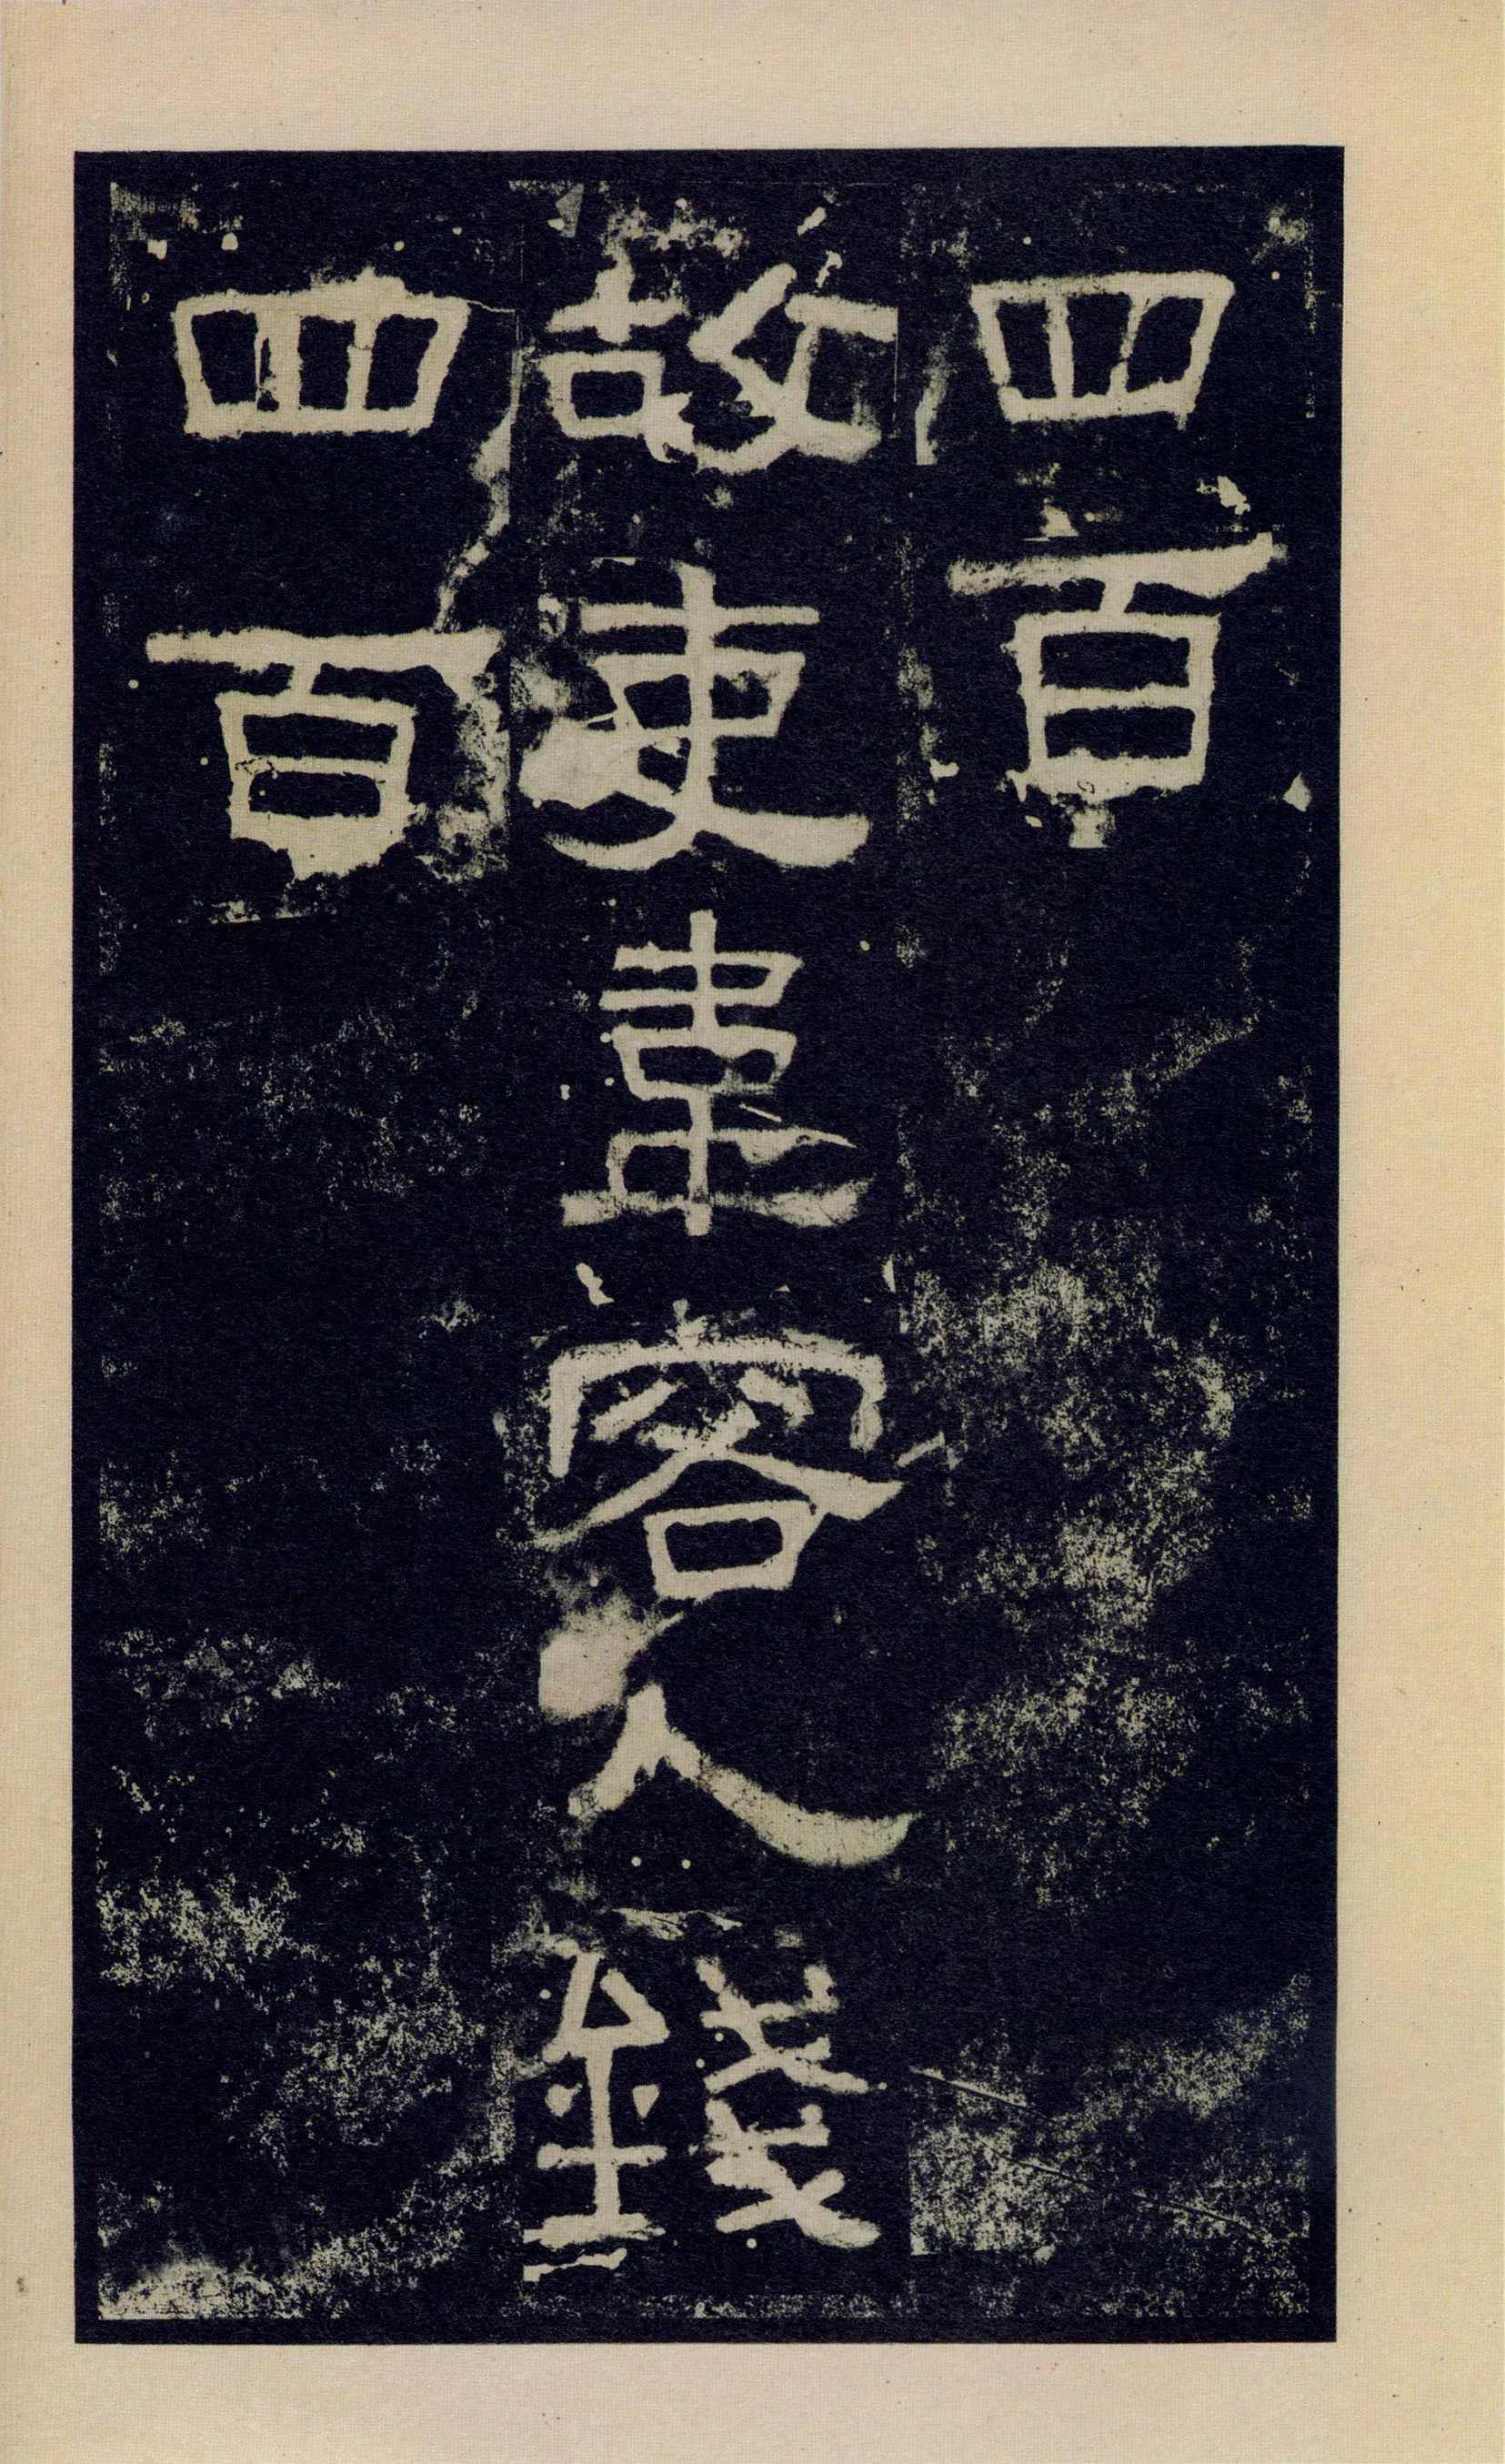 四百
故吏韋容人錢
四百